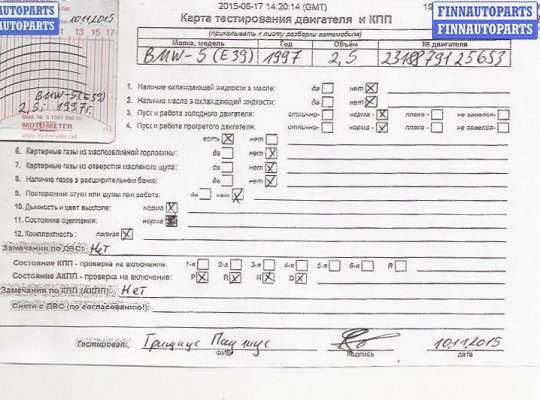 FINNAUTOPARTS
AUTOPARTS
AUTOPARTS
10.11.2015
13 15 17
BMW-5 (E39)
2,5i 1997г.
MOTOMETER
2015-06-17 14:20:14 (GMT)
FINNAUTOPARTS
FINNAUTOPARTS
FINNAUTOPARTS
Карта тестирования двигателя и КПП
(прикалывать к листу разборки автомобиля)
Марка, модель Год Объём № двигателя
BMW-5 (E39) 1997 2,5 23188791 25653
1. Наличие охлаждающей жидкости в масле: да нет X
2. Наличие масла в охлаждающей жидкости: да нет X
3. Пуск и работа холодного двигателя: отлично- норма - X плохо - не завелся-
4. Пуск и работа прогретого двигателя: отлично- норма - X плохо - не завелся-
есть X нет
6. Картерные газы из маслозаливной горловины: да нет X
7. Картерные газы из отверстия масляного щупа: да нет X
8. Наличие газов в расширительном бачке: да нет X
9. Посторонние стуки или шумы при работе: да нет X
10. Дымность и цвет выхлопа: норма X
11. Состояние сцепления: норма
12. Комплектность: полная X
Замечания по ДВС: Нет
Состояние КПП - проверка на включение: 1-я 2-я 3-я 4-я 5-я 6-я R
Состояние АКПП - проверка на включение: P X R X N X D X
Замечания по КПП (АКПП): Нет
Снято с ДВС (по согласованию!):
Тестировал: 10.11.2015
ФИО подпись дата